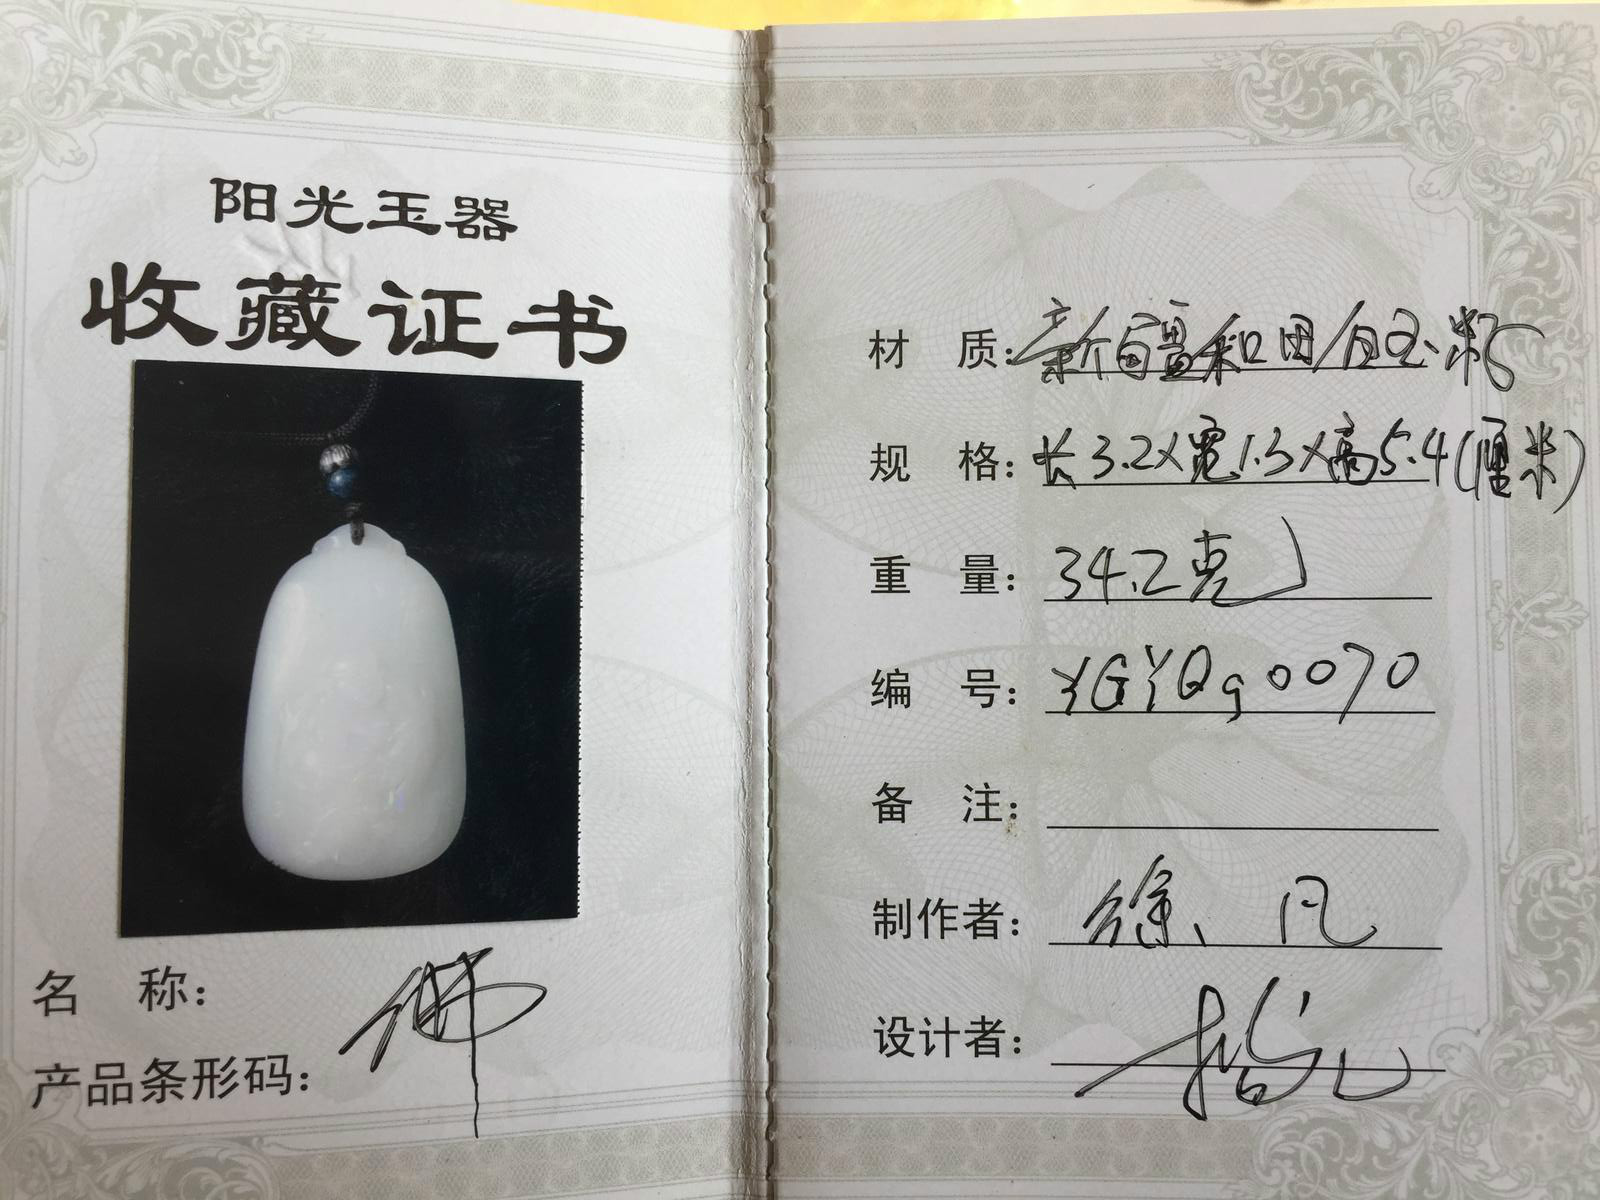 阳光玉器
收藏证书
名 称: 佛
产品条形码:
材 质: 新疆和田白玉籽
规 格: 长3.2X宽1.3X高5.4(厘米)
重 量: 34.2克
编 号: YGYQg0070
备 注:
制作者: 徐、凡
设计者: